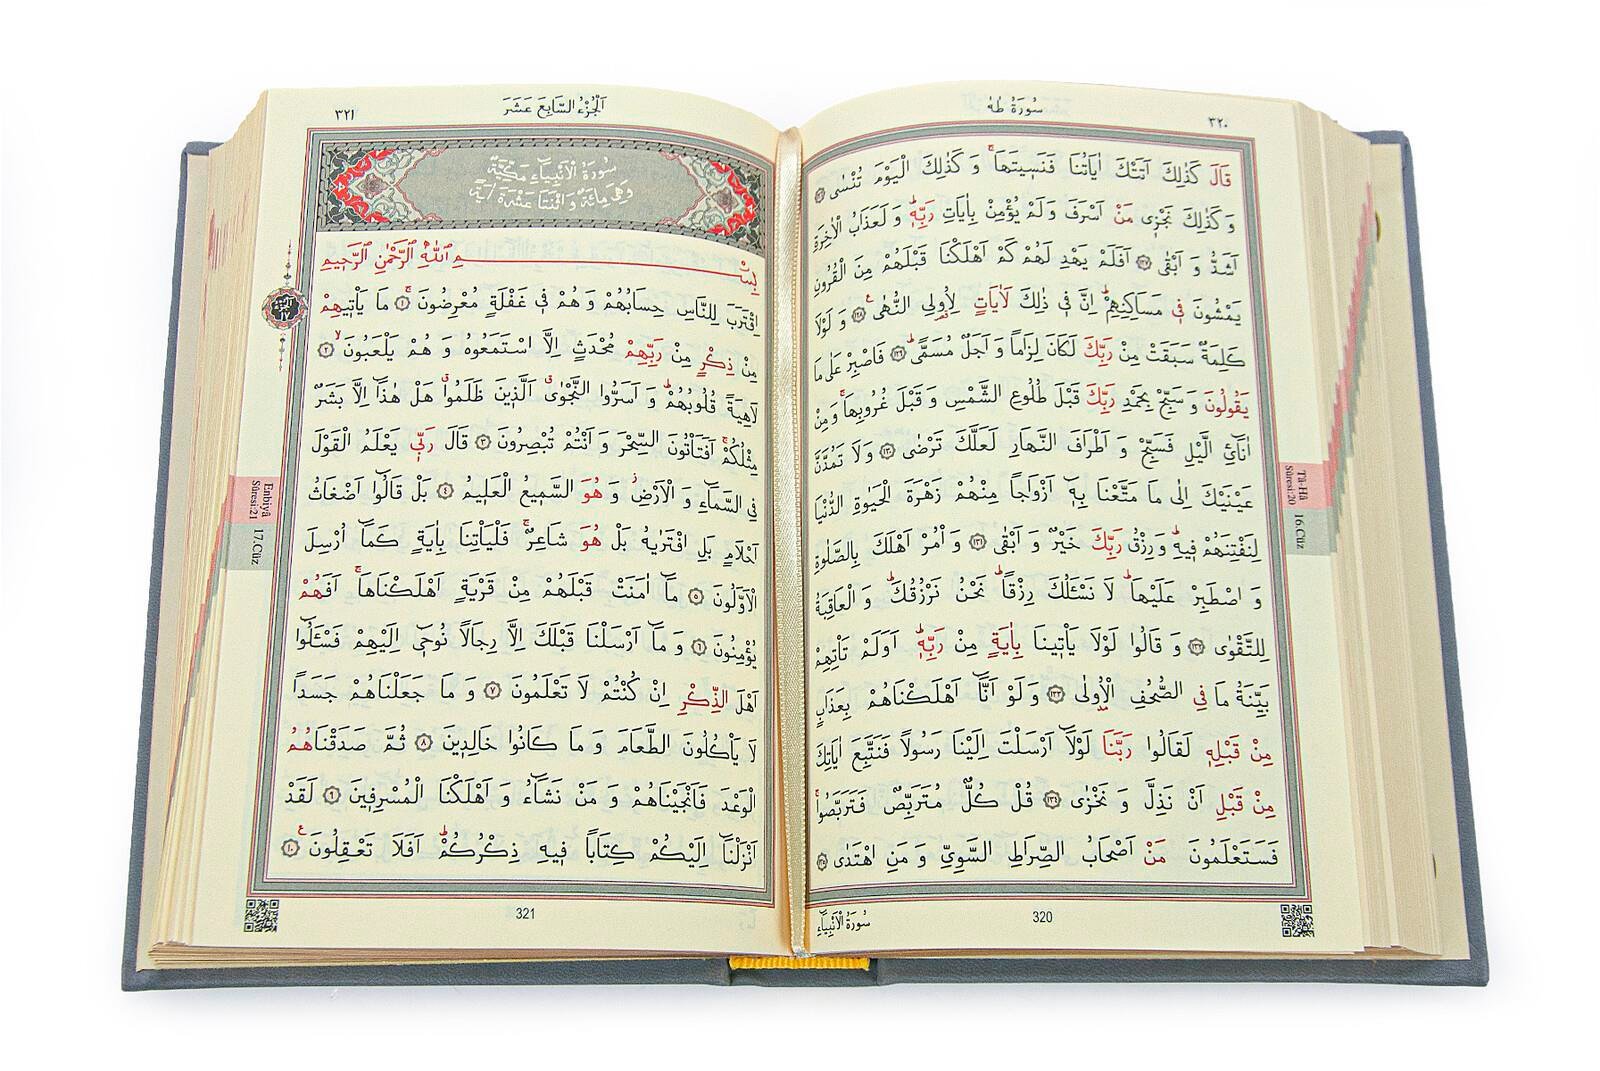 سُورَةُ طٰهٰ
٣٢٠
قَالَ كَذٰلِكَ اَتَتْكَ اٰيَاتُنَا فَنَس۪يتَهَاۚ وَكَذٰلِكَ الْيَوْمَ تُنْسٰى ﴿١٢٦﴾
وَكَذٰلِكَ نَجْز۪ي مَنْ اَسْرَفَ وَلَمْ يُؤْمِنْ بِاٰيَاتِ رَبِّه۪ۜ وَلَعَذَابُ الْاٰخِرَةِ
اَشَدُّ وَاَبْقٰى ﴿١٢٧﴾ اَفَلَمْ يَهْدِ لَهُمْ كَمْ اَهْلَكْنَا قَبْلَهُمْ مِنَ الْقُرُونِ
يَمْشُونَ ف۪ي مَسَاكِنِهِمْۜ اِنَّ ف۪ي ذٰلِكَ لَاٰيَاتٍ لِاُو۬لِي النُّهٰى۟ ﴿١٢٨﴾ وَلَوْلَا
كَلِمَةٌ سَبَقَتْ مِنْ رَبِّكَ لَكَانَ لِزَامًا وَاَجَلٌ مُسَمًّىۜ ﴿١٢٩﴾ فَاصْبِرْ عَلٰى مَا
يَقُولُونَ وَسَبِّحْ بِحَمْدِ رَبِّكَ قَبْلَ طُلُوعِ الشَّمْسِ وَقَبْلَ غُرُوبِهَاۚ وَمِنْ
اٰنَآئِ الَّيْلِ فَسَبِّحْ وَاَطْرَافَ النَّهَارِ لَعَلَّكَ تَرْضٰى ﴿١٣٠﴾ وَلَا تَمُدَّنَّ
عَيْنَيْكَ اِلٰى مَا مَتَّعْنَا بِه۪ٓ اَزْوَاجًا مِنْهُمْ زَهْرَةَ الْحَيٰوةِ الدُّنْيَا
لِنَفْتِنَهُمْ ف۪يهِۜ وَرِزْقُ رَبِّكَ خَيْرٌ وَاَبْقٰى ﴿١٣١﴾ وَأْمُرْ اَهْلَكَ بِالصَّلٰوةِ
وَاصْطَبِرْ عَلَيْهَاۜ لَا نَسْـَٔلُكَ رِزْقًاۜ نَحْنُ نَرْزُقُكَۜ وَالْعَاقِبَةُ
لِلتَّقْوٰى ﴿١٣٢﴾ وَقَالُوا لَوْلَا يَأْت۪ينَا بِاٰيَةٍ مِنْ رَبِّه۪ۜ اَوَلَمْ تَأْتِهِمْ
بَيِّنَةُ مَا فِي الصُّحُفِ الْاُو۫لٰى ﴿١٣٣﴾ وَلَوْ اَنَّٓا اَهْلَكْنَاهُمْ بِعَذَابٍ
مِنْ قَبْلِه۪ لَقَالُوا رَبَّنَا لَوْلَٓا اَرْسَلْتَ اِلَيْنَا رَسُولًا فَنَتَّبِعَ اٰيَاتِكَ
مِنْ قَبْلِ اَنْ نَذِلَّ وَنَخْزٰى ﴿١٣٤﴾ قُلْ كُلٌّ مُتَرَبِّصٌ فَتَرَبَّصُواۚ
فَسَتَعْلَمُونَ مَنْ اَصْحَابُ الصِّرَاطِ السَّوِيِّ وَمَنِ اهْتَدٰى ﴿١٣٥﴾
Tâ-Hâ
Sûresi:20
16.Cüz
320
سُورَةُ الْاَنْبِيَٓاءِ
اَلْجُزْءُ السَّابِعَ عَشَرَ
٣٢١
سُورَةُ الْاَنْبِيَٓاءِ مَكِّيَّةٌ
وَهِيَ مِائَةٌ وَاثْنَتَا عَشْرَةَ اٰيَةً
بِسْمِ اللّٰهِ الرَّحْمٰنِ الرَّح۪يمِ
اِقْتَرَبَ لِلنَّاسِ حِسَابُهُمْ وَهُمْ ف۪ي غَفْلَةٍ مُعْرِضُونَۚ ﴿١﴾ مَا يَأْت۪يهِمْ
مِنْ ذِكْرٍ مِنْ رَبِّهِمْ مُحْدَثٍ اِلَّا اسْتَمَعُوهُ وَهُمْ يَلْعَبُونَۙ ﴿٢﴾
لَاهِيَةً قُلُوبُهُمْۜ وَاَسَرُّوا النَّجْوٰىۗ اَلَّذ۪ينَ ظَلَمُواۗ هَلْ هٰذَٓا اِلَّا بَشَرٌ
مِثْلُكُمْۚ اَفَتَأْتُونَ السِّحْرَ وَاَنْتُمْ تُبْصِرُونَ ﴿٣﴾ قَالَ رَبّ۪ي يَعْلَمُ الْقَوْلَ
فِي السَّمَٓاءِ وَالْاَرْضِۘ وَهُوَ السَّم۪يعُ الْعَل۪يمُ ﴿٤﴾ بَلْ قَالُٓوا اَضْغَاثُ
اَحْلَامٍ بَلِ افْتَرٰيهُ بَلْ هُوَ شَاعِرٌۚ فَلْيَأْتِنَا بِاٰيَةٍ كَمَٓا اُرْسِلَ
الْاَوَّلُونَ ﴿٥﴾ مَٓا اٰمَنَتْ قَبْلَهُمْ مِنْ قَرْيَةٍ اَهْلَكْنَاهَاۚ اَفَهُمْ
يُؤْمِنُونَ ﴿٦﴾ وَمَٓا اَرْسَلْنَا قَبْلَكَ اِلَّا رِجَالًا نُوح۪ٓي اِلَيْهِمْ فَسْـَٔلُٓوا
اَهْلَ الذِّكْرِ اِنْ كُنْتُمْ لَا تَعْلَمُونَ ﴿٧﴾ وَمَا جَعَلْنَاهُمْ جَسَدًا
لَا يَأْكُلُونَ الطَّعَامَ وَمَا كَانُوا خَالِد۪ينَ ﴿٨﴾ ثُمَّ صَدَقْنَاهُمُ
الْوَعْدَ فَاَنْجَيْنَاهُمْ وَمَنْ نَشَٓاءُ وَاَهْلَكْنَا الْمُسْرِف۪ينَ ﴿٩﴾ لَقَدْ
اَنْزَلْنَٓا اِلَيْكُمْ كِتَابًا ف۪يهِ ذِكْرُكُمْۜ اَفَلَا تَعْقِلُونَ۟ ﴿١٠﴾
Enbiyâ
Sûresi:21
17.Cüz
321